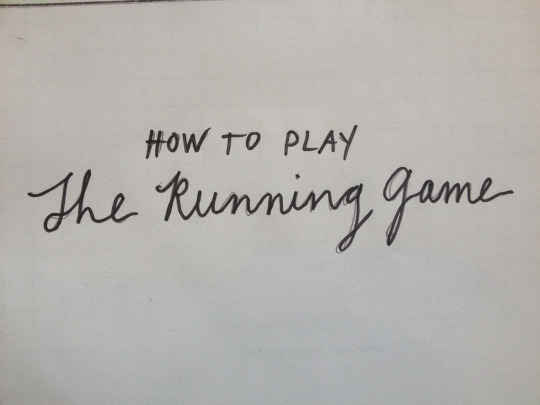 HOW TO PLAY
The Running Game